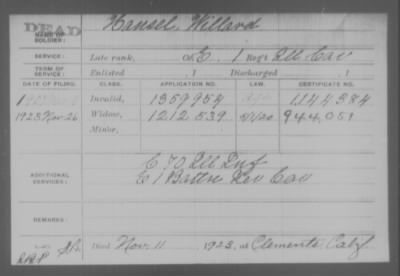 DEAD
NAME OF SOLDIER: Hansel, Willard
SERVICE: Late rank, Co. E, 1 Reg't Ill Cav
TERM OF SERVICE: Enlisted , 1 Discharged , 1
DATE OF FILING. CLASS. APPLICATION NO. LAW. CERTIFICATE NO.
1 Invalid, 1359954 1144584
1923 Nov. 26 Widow, 1212539 944051
Minor,
ADDITIONAL SERVICES: C 70 Ill Inf
E 1 Batt'n Nev Cav
REMARKS:
Died Nov. 11 1923, at Clements Calif